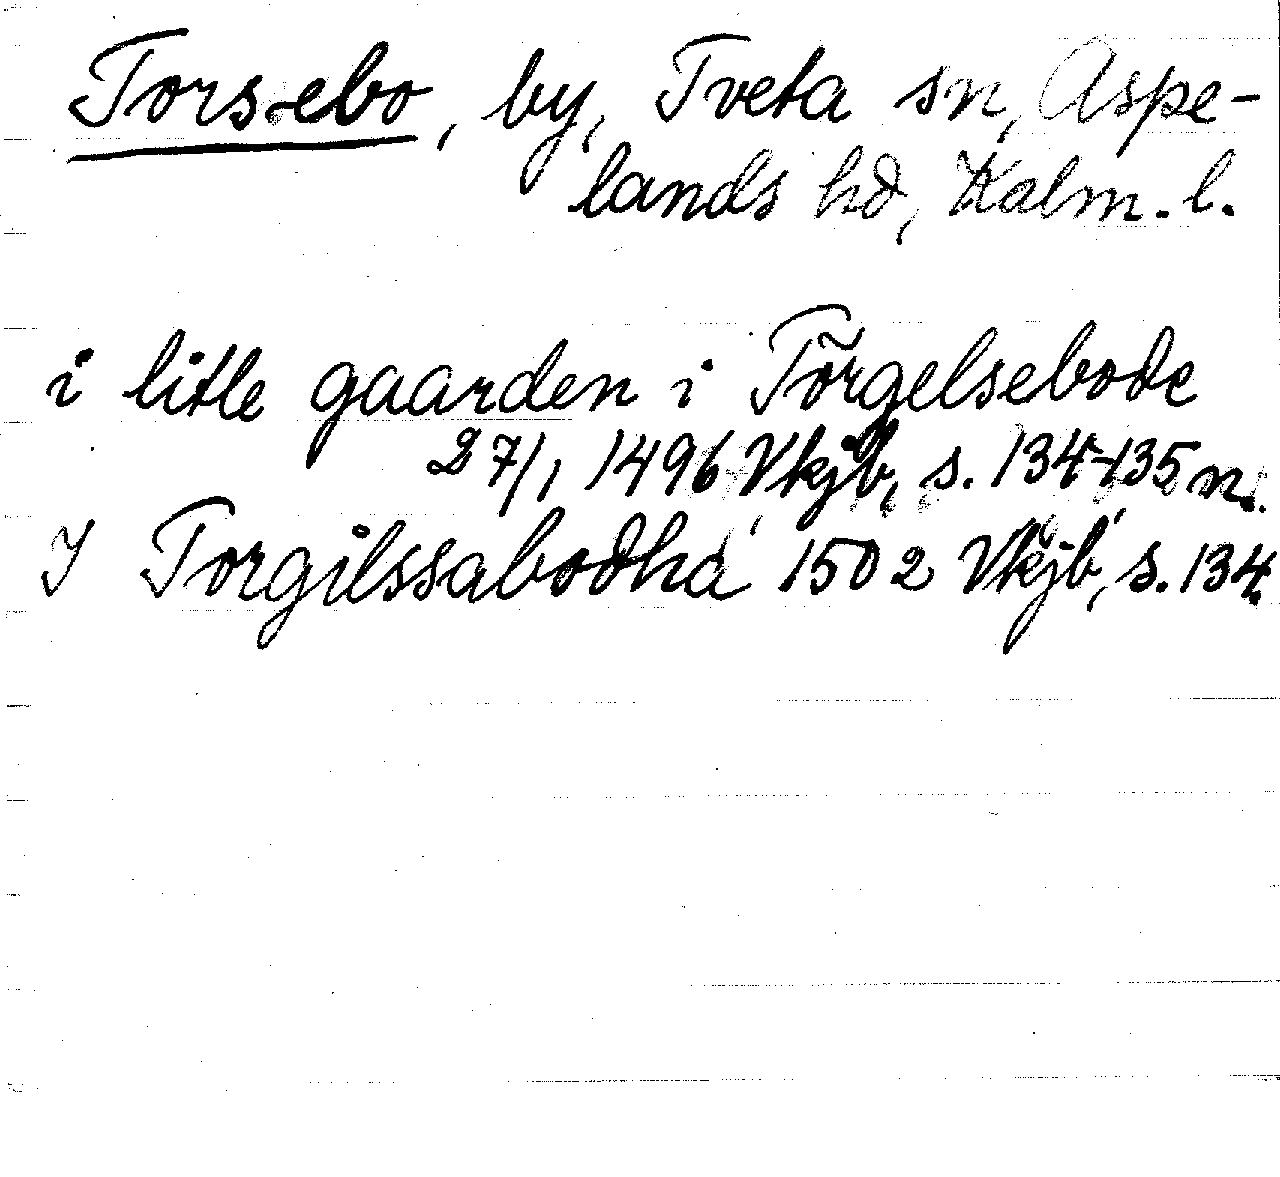 Torsebo, by, Tveta sn, Aspe-
lands hd, Kalm. l.
i litle gaarden i Tõrgelsebode
27/1 1496 Vkjb, s. 134-135 n.
I Torgilssabodha 1502 Vkjb, s. 134.